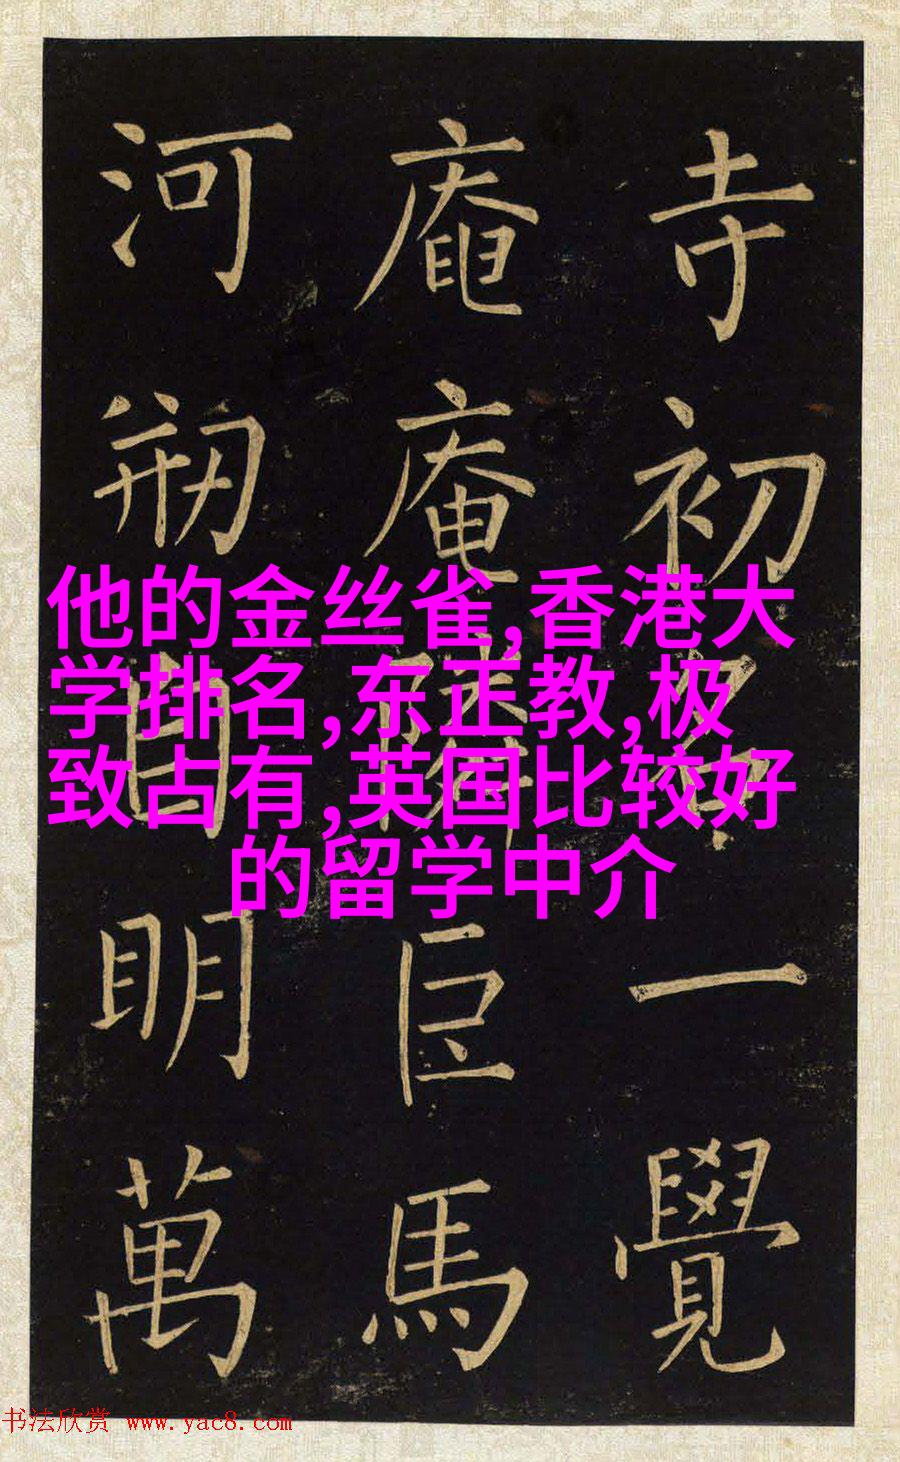 寺初名一覺
庵庵隣臣馬
河刱自明萬
他的金丝雀,香港大
学排名,东正教,极
致占有,英国比较好
的留学中介
书法欣赏 www.yac8.com